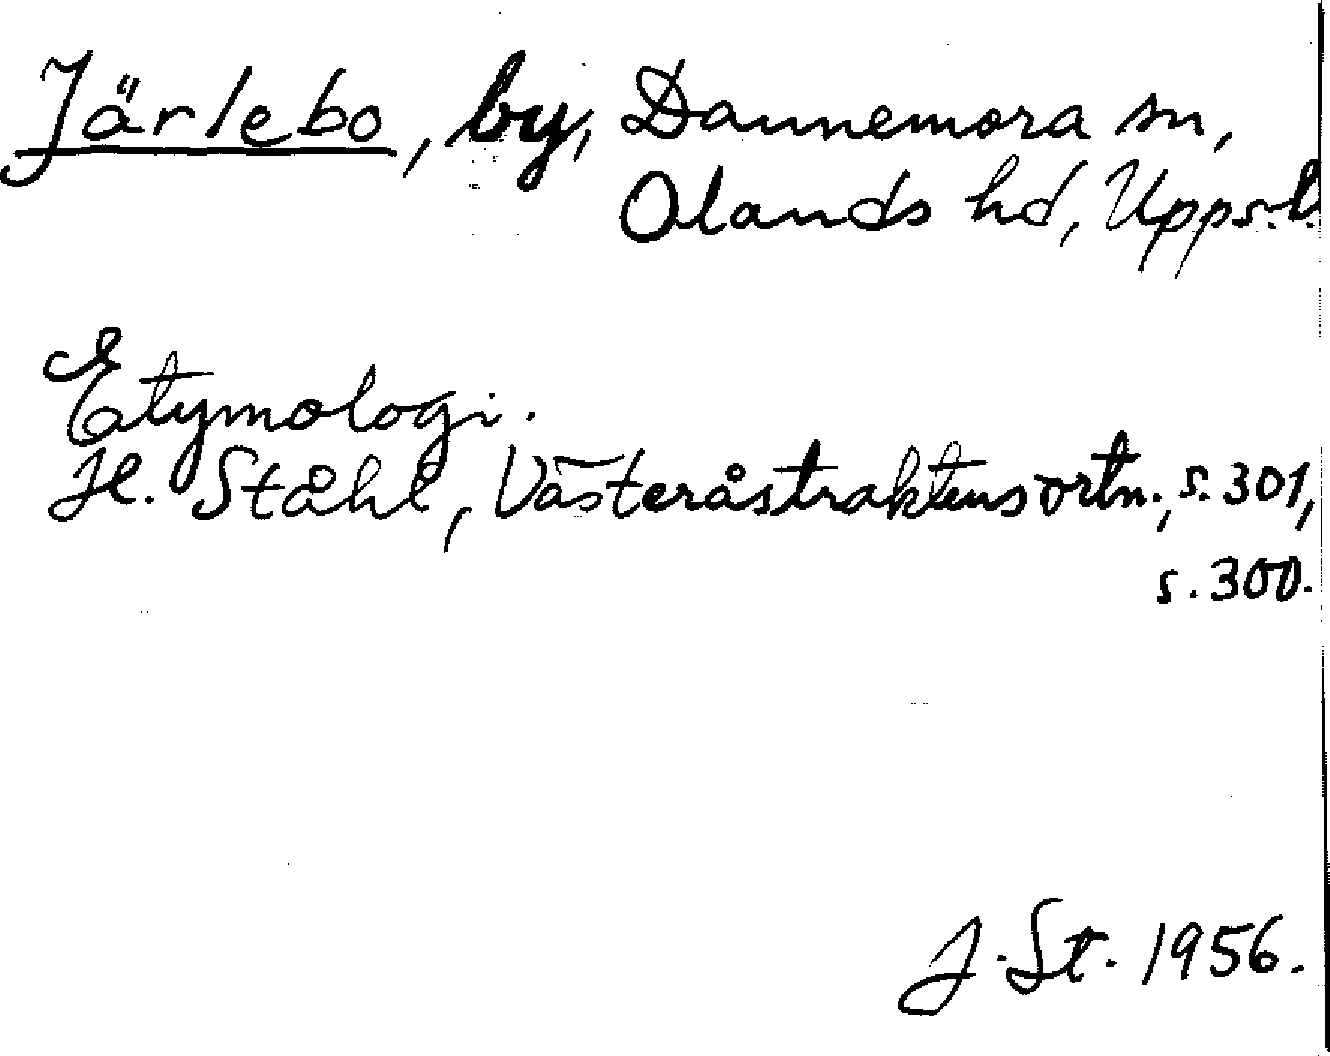 Järlebo, by, Dannemora sn,
Olands hd, Upps.l.
Etymologi.
H. Ståhl, Västeråstraktens ortn., s. 301,
s. 300.
J. St. 1956.